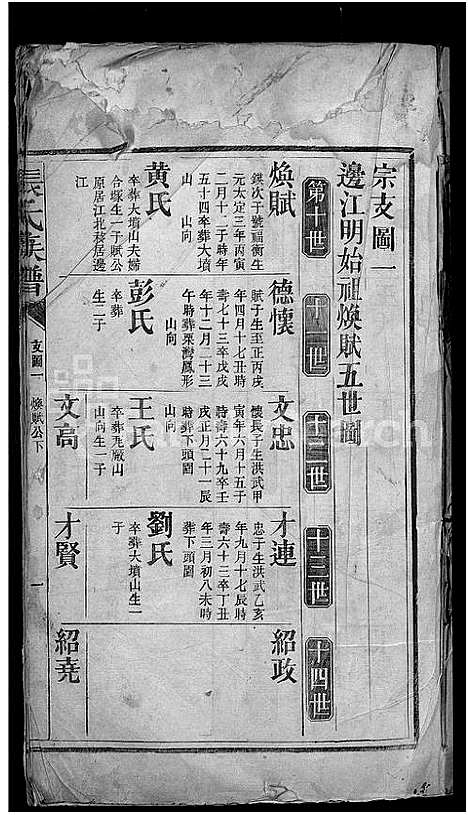 宗支圖一
邊江明始祖煥賦五世圖
第十世
十一世
十二世
十三世
十四世
煥賦
鉄次子號福衡生
元太定三年丙寅
二月十二子時年
五十四卒葬大墳
山 山向
黄氏
卒葬大墳山夫婦
合塚生一子賦公
原居江北移居邊
江
德懷
賦子生至正丙戌
年四月十七丑時
壽七十三卒戊戌
年十二月二十三
午時葬菜灣鳳形
山向
彭氏
卒葬
生二子
文忠
懷長子生洪武甲
寅年六月十五子
時壽六十九卒壬
戌正月二十一辰
時葬下頭圖
山向
王氏
卒葬九嚴山
山向生一子
文高
才連
忠子生洪武乙亥
年九月十七辰時
壽六十三卒丁丑
年三月初八未時
葬下頭圖
劉氏
卒葬大墳山生一
子
才賢
紹政
紹堯
氏族譜
支圖一 煥賦公下
一